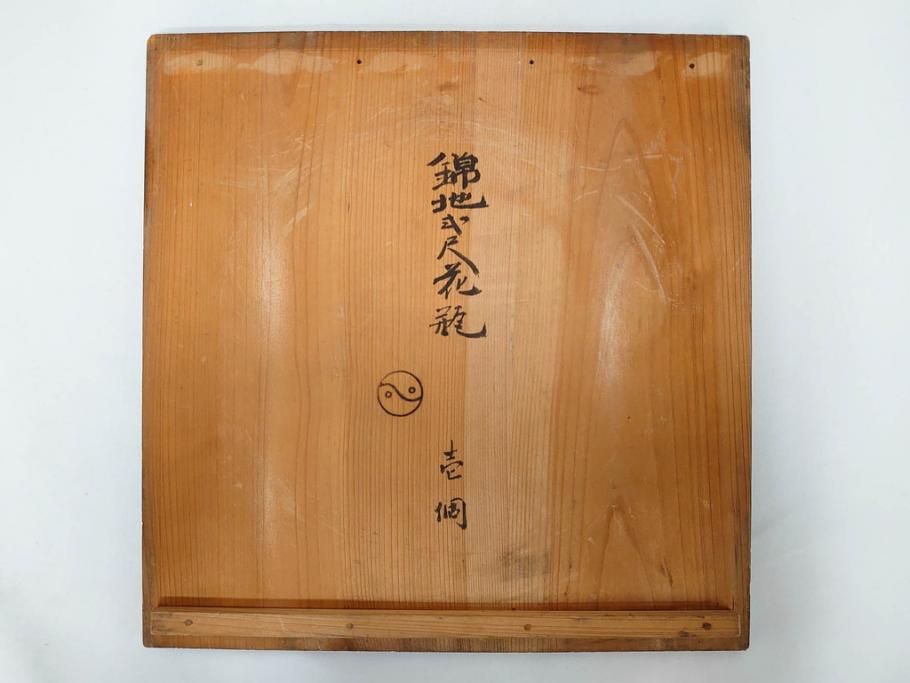 錦地弐尺花瓶
壱個